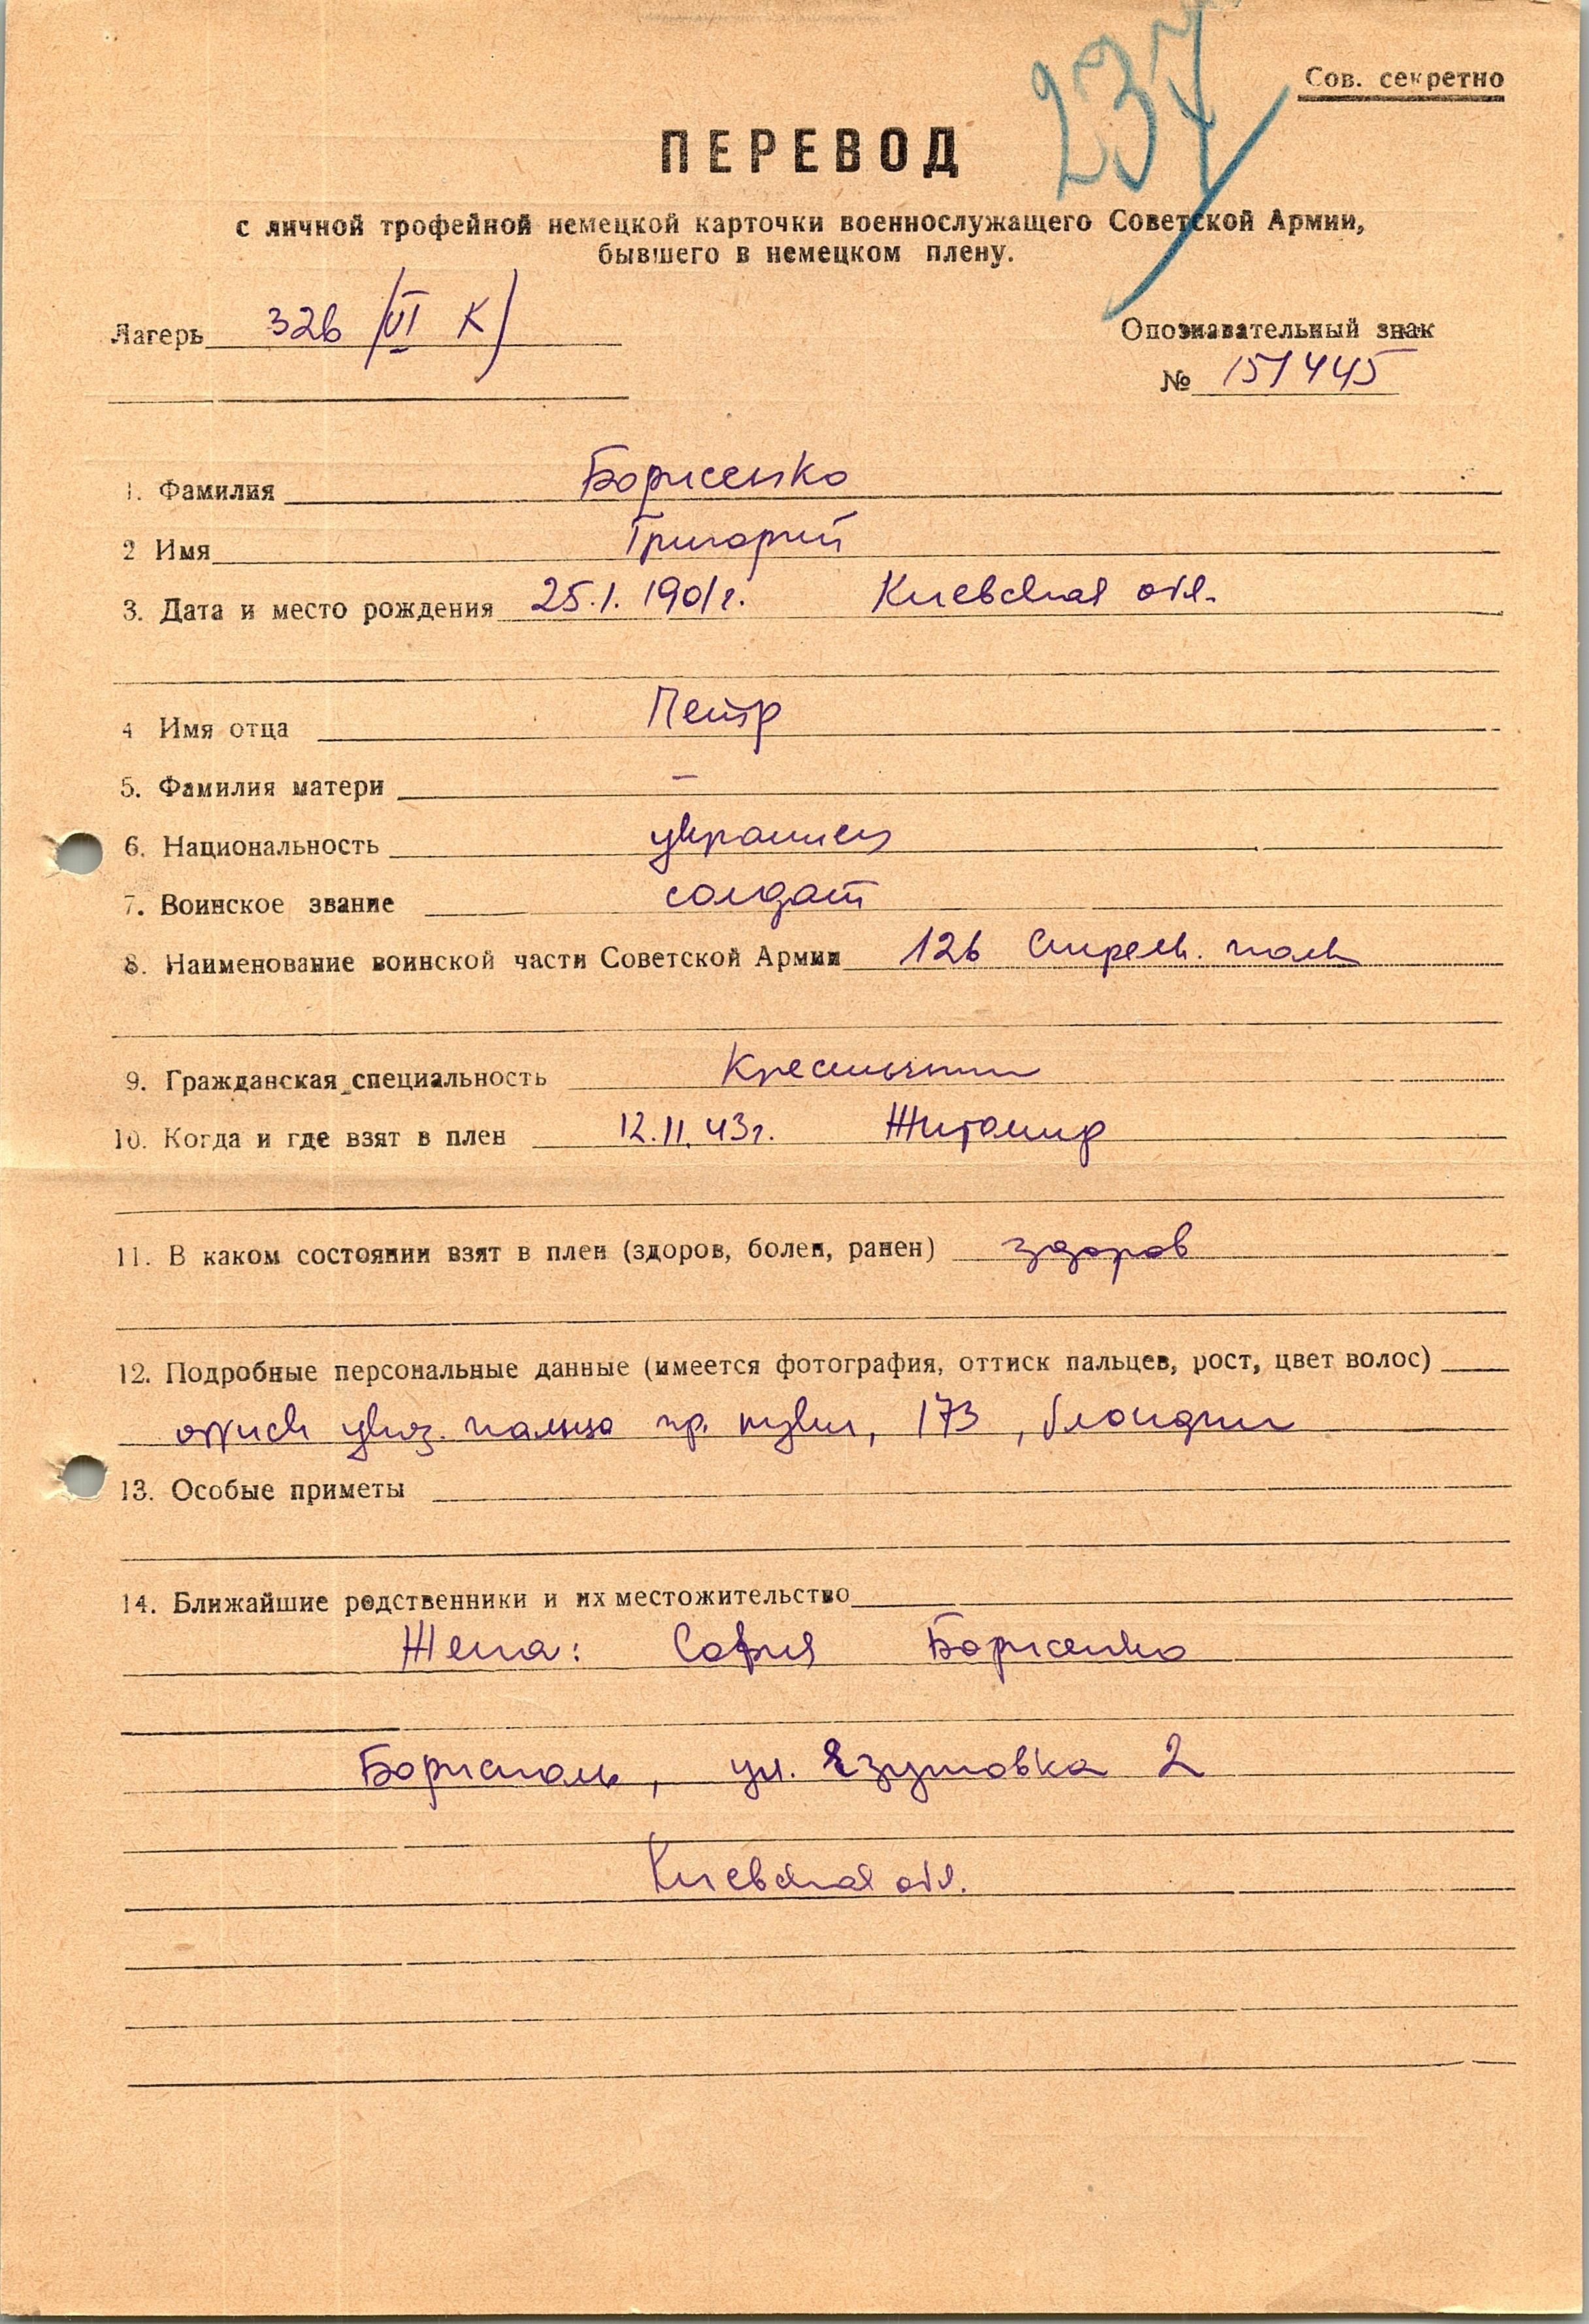 237
Сов. секретно
ПЕРЕВОД
с личной трофейной немецкой карточки военнослужащего Советской Армии,
бывшего в немецком плену.
Лагерь 326 /VI К/
Опознавательный знак
№ 151445
1. Фамилия Борисенко
2 Имя Григорий
3. Дата и место рождения 25.1.1901г. Киевская обл.
4 Имя отца Петр
5. Фамилия матери –
6. Национальность украинец
7. Воинское звание солдат
8. Наименование воинской части Советской Армии 126 Стрелк. полк
9. Гражданская специальность Крестьянин
10. Когда и где взят в плен 12.11.43г. Житомир
11. В каком состоянии взят в плен (здоров, болен, ранен) здоров
12. Подробные персональные данные (имеется фотография, оттиск пальцев, рост, цвет волос)
оттиск указ. пальца пр. руки, 173, блондин
13. Особые приметы
14. Ближайшие родственники и их местожительство
Жена: София Борисенко
Борисполь, ул. 2
Киевская обл.